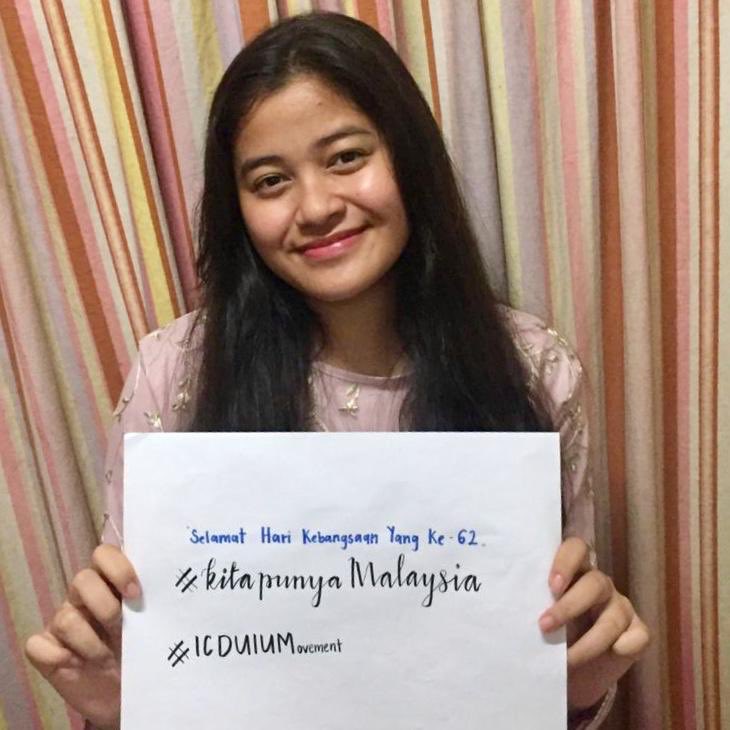 Selamat Hari Kebangsaan Yang Ke-62.
#kitapunyaMalaysia
#ICDUIUMovement